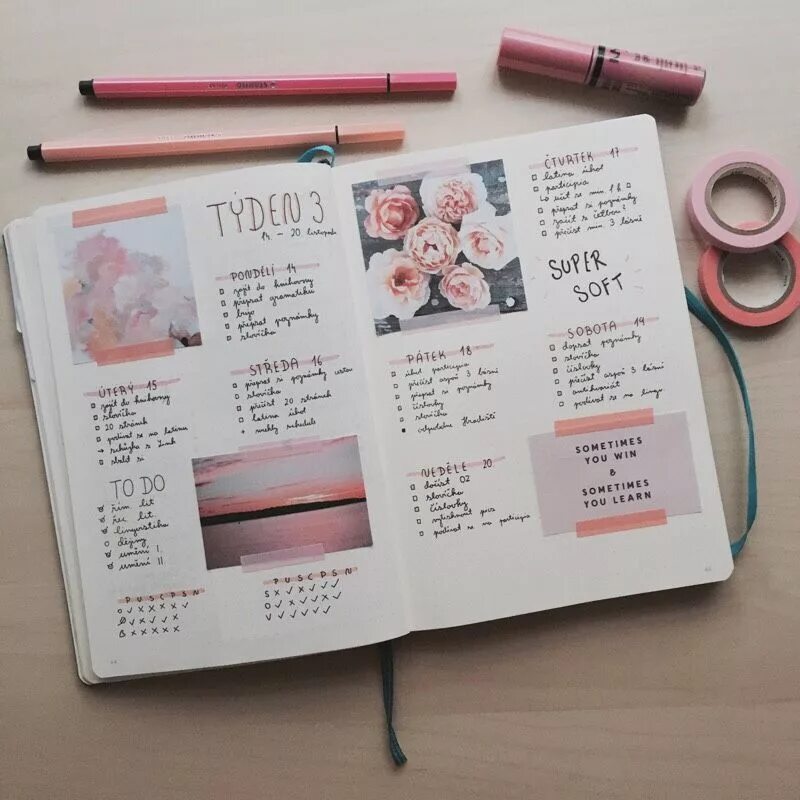 STABILO
TÝDEN 3
14. – 20. listopadu
PONDĚLÍ 14
zajít do knihovny
přepsat gramatiku
přepsat poznámky
slovíčka
ÚTERÝ 15
zajít do knihovny
slovíčka
20 stránek
podívat se na latinu
STŘEDA 16
přepsat si poznámky
slovíčka
přečíst 20 stránek
latina úkol
+ weekly schedule
TO DO
řím. lit.
řec. lit.
lingvistika
dějiny
umění I.
umění II
P U S Č P S N
P U S Č P S N
ČTVRTEK 17
latina úkol
participia
přepsat si poznámky
začít s četbou?
přečíst min. 3 básně
SUPER
SOFT
PÁTEK 18
úkol participia
přečíst aspoň 3 básně
přepsat si poznámky
číslovky
slovíčka
odpoledne Hradiště
SOBOTA 19
dopsat poznámky
slovíčka
číslovky
přečíst aspoň 3 básně
podívat se na lingv.
NEDĚLE 20
dočíst OZ
slovíčka
číslovky
podívat se na participia
SOMETIMES
YOU WIN
&
SOMETIMES
YOU LEARN